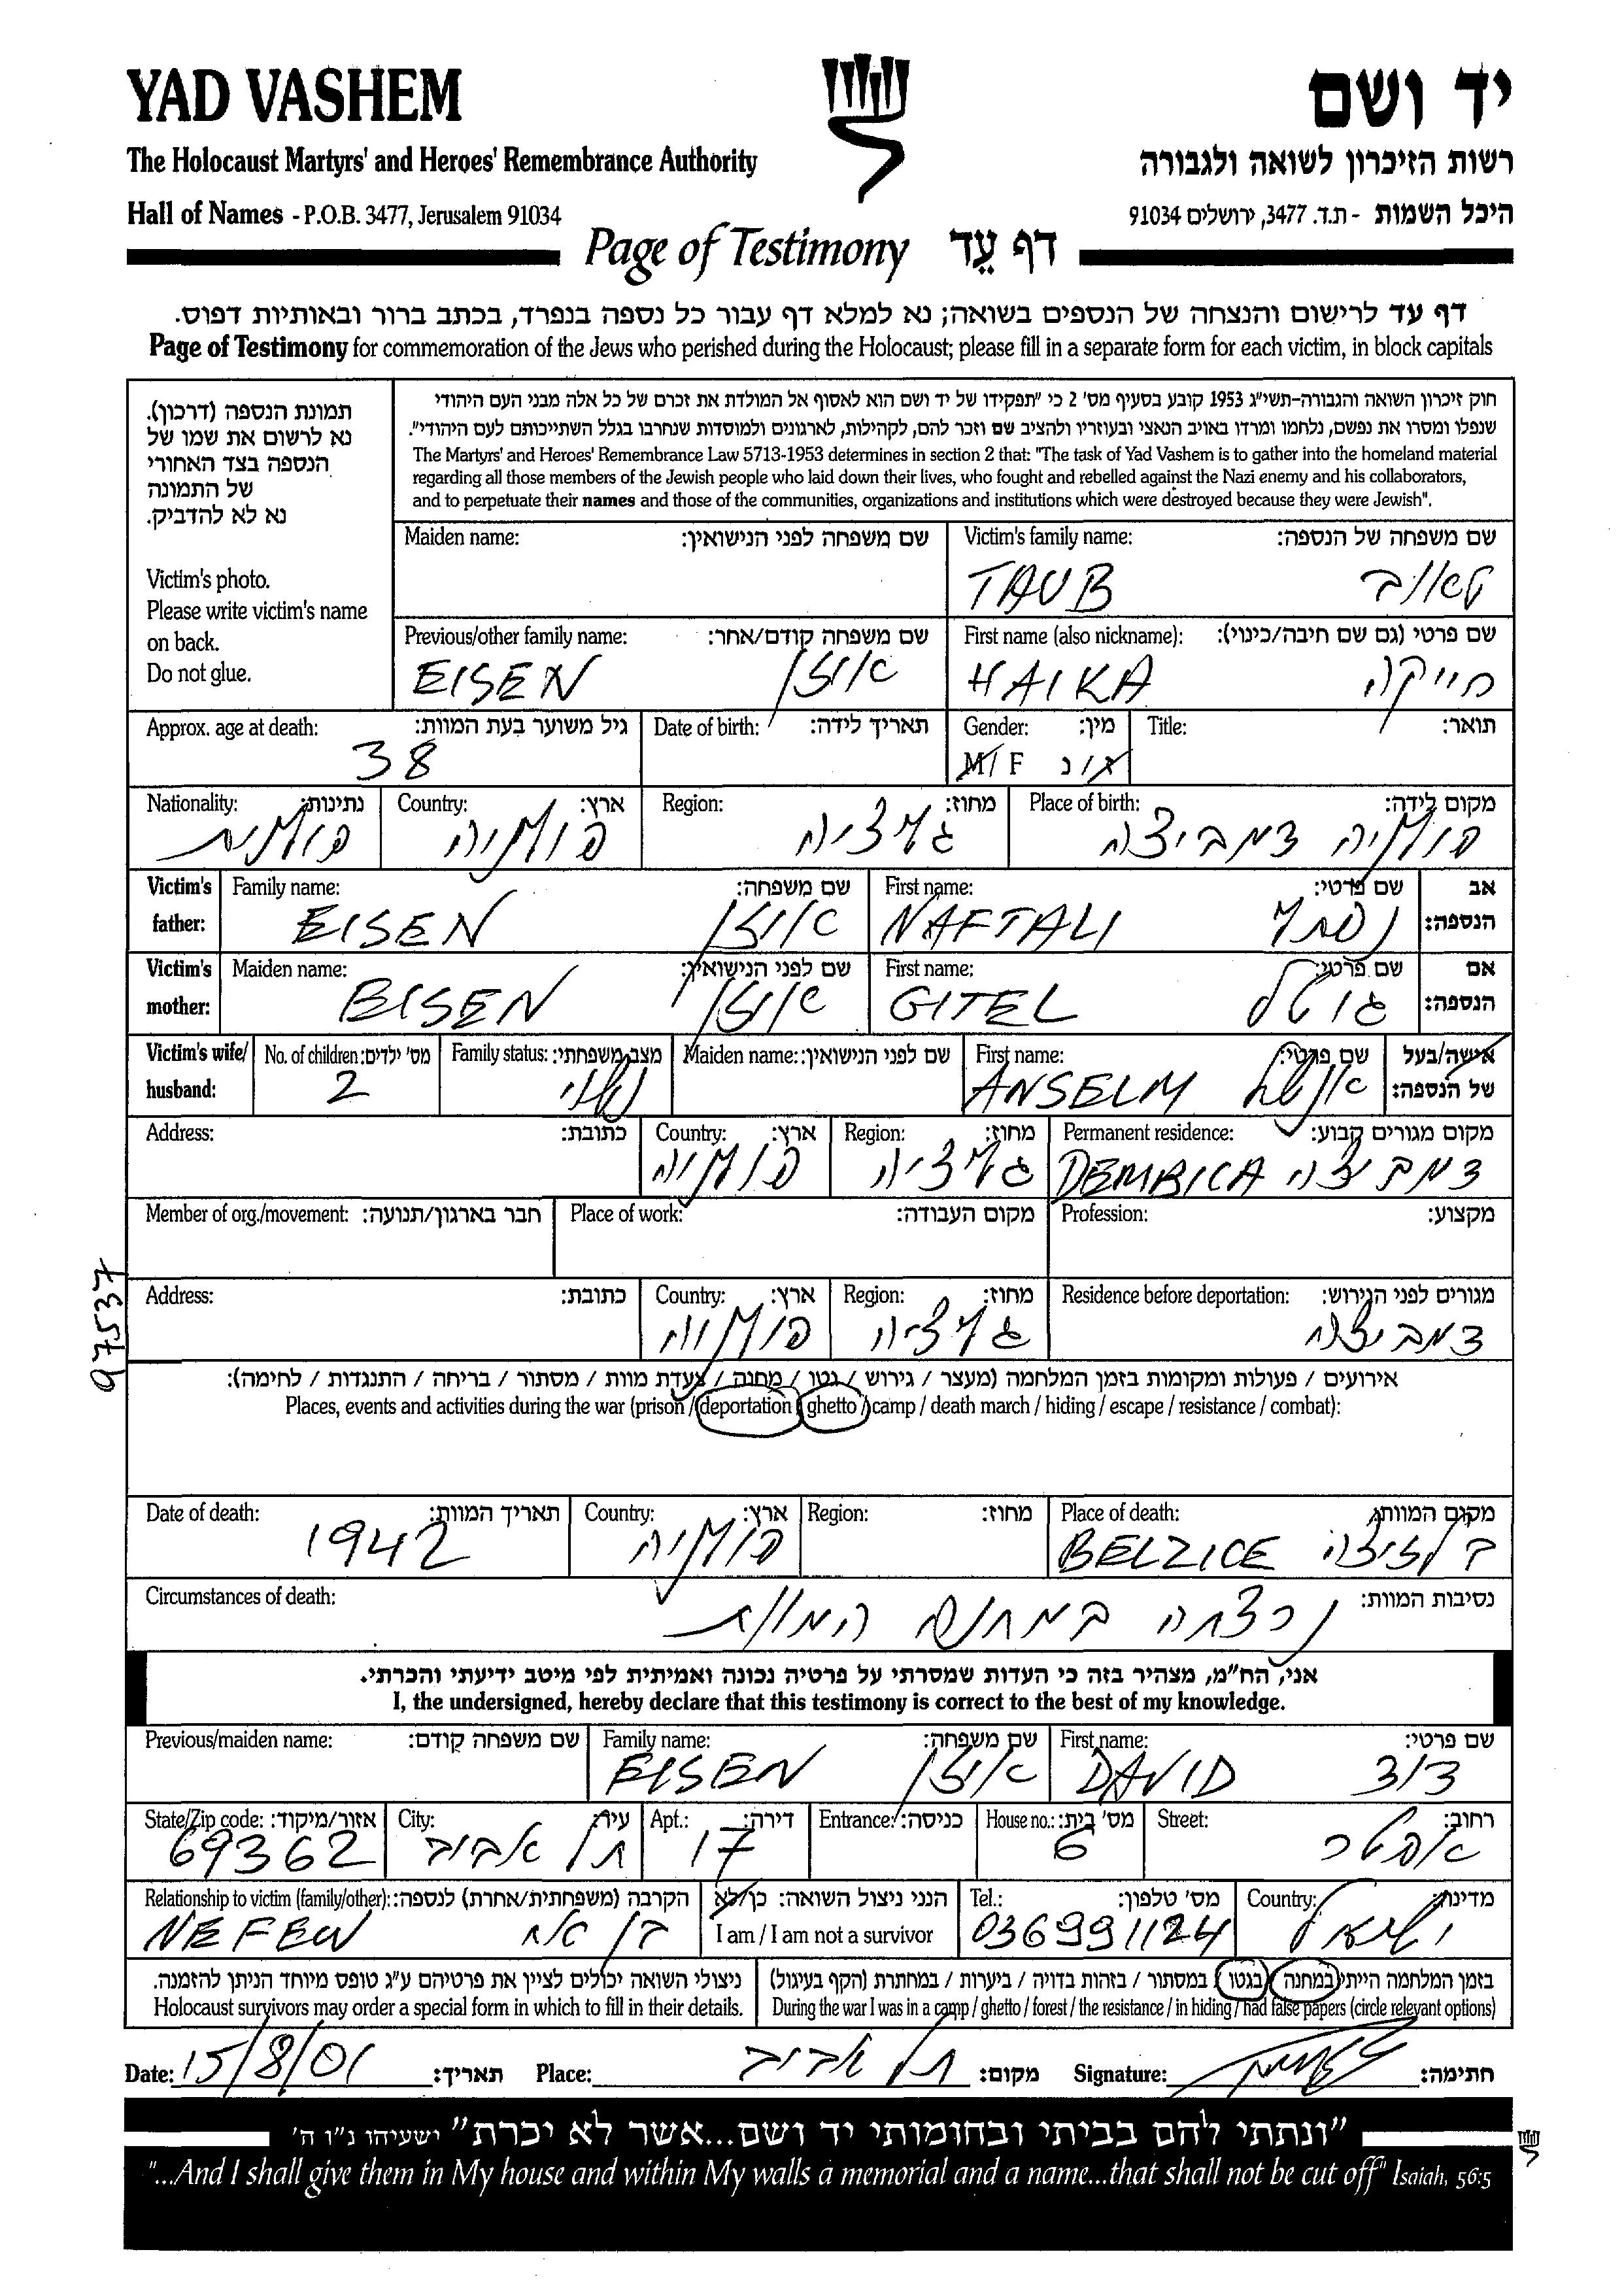 YAD VASHEM יד ושם
The Holocaust Martyrs' and Heroes' Remembrance Authority רשות הזיכרון לשואה ולגבורה
Hall of Names - P.O.B. 3477, Jerusalem 91034 היכל השמות - ת.ד. 3477, ירושלים 91034
Page of Testimony דף עֵד
דף עד לרישום והנצחה של הנספים בשואה; נא למלא דף עבור כל נספה בנפרד, בכתב ברור ובאותיות דפוס.
Page of Testimony for commemoration of the Jews who perished during the Holocaust; please fill in a separate form for each victim, in block capitals
תמונת הנספה (דרכון).
נא לרשום את שמו של
הנספה בצד האחורי
של התמונה
נא לא להדביק.
Victim's photo.
Please write victim's name
on back.
Do not glue.
חוק זיכרון השואה והגבורה-תשי"ג 1953 קובע בסעיף מס' 2 כי "תפקידו של יד ושם הוא לאסוף אל המולדת את זכרם של כל אלה מבני העם היהודי
שנפלו ומסרו את נפשם, נלחמו ומרדו באויב הנאצי ובעוזריו ולהציב שם וזכר להם, לקהילות, לארגונים ולמוסדות שנחרבו בגלל השתייכותם לעם היהודי".
The Martyrs' and Heroes' Remembrance Law 5713-1953 determines in section 2 that: "The task of Yad Vashem is to gather into the homeland material
regarding all those members of the Jewish people who laid down their lives, who fought and rebelled against the Nazi enemy and his collaborators,
and to perpetuate their names and those of the communities, organizations and institutions which were destroyed because they were Jewish".
Maiden name: שם משפחה לפני הנישואין: Victim's family name: שם משפחה של הנספה:
TAUB טאוב
Previous/other family name: שם משפחה קודם/אחר: First name (also nickname): שם פרטי (גם שם חיבה/כינוי):
EISEN אייזן HAIKA חייקה
Approx. age at death: גיל משוער בעת המוות: Date of birth: תאריך לידה: Gender: מין: Title: תואר:
38 M/F ז/נ
Nationality: נתינות: Country: ארץ: Region: מחוז: Place of birth: מקום לידה:
פולנית פולניה גליציה פולניה דמביצה
Victim's father: Family name: שם משפחה: First name: שם פרטי: אב הנספה:
EISEN אייזן NAFTALI נפתלי
Victim's mother: Maiden name: שם לפני הנישואין: First name: שם פרטי: אם הנספה:
EISEN אייזן GITEL גיטל
Victim's wife/husband: No. of children: מס' ילדים: Family status: מצב משפחתי: Maiden name: שם לפני הנישואין: First name: שם פרטי: אישה/בעל של הנספה:
2 נשוי ANSELM אנשל
Address: כתובת: Country: ארץ: Region: מחוז: Permanent residence: מקום מגורים קבוע:
פולניה גליציה DEMBICA דמביצה
Member of org./movement: חבר בארגון/תנועה: Place of work: מקום העבודה: Profession: מקצוע:
97537
Address: כתובת: Country: ארץ: Region: מחוז: Residence before deportation: מגורים לפני הגירוש:
פולניה גליציה דמביצה
אירועים / פעולות ומקומות בזמן המלחמה (מעצר / גירוש / גטו / מחנה / צעדת מוות / מסתור / בריחה / התנגדות / לחימה):
Places, events and activities during the war (prison / deportation / ghetto / camp / death march / hiding / escape / resistance / combat):
Date of death: תאריך המוות: Country: ארץ: Region: מחוז: Place of death: מקום המוות:
1942 פולניה BELZICE בלזיצה
Circumstances of death: נסיבות המוות:
נרצחה במחנה המוות
אני, הח"מ, מצהיר בזה כי העדות שמסרתי על פרטיה נכונה ואמיתית לפי מיטב ידיעתי והכרתי.
I, the undersigned, hereby declare that this testimony is correct to the best of my knowledge.
Previous/maiden name: שם משפחה קודם: Family name: שם משפחה: First name: שם פרטי:
EISEN אייזן DAVID דוד
State/Zip code: אזור/מיקוד: City: עיר: Apt.: דירה: Entrance: כניסה: House no.: מס' בית: Street: רחוב:
69362 תל אביב 17 6 אפטר
Relationship to victim (family/other): הקרבה (משפחתית/אחרת) לנספה: הנני ניצול השואה: כן/לא Tel.: מס' טלפון: Country: מדינה:
NEFEW בן אח I am / I am not a survivor 036991124 ישראל
ניצולי השואה יכולים לציין את פרטיהם ע"ג טופס מיוחד הניתן להזמנה. בזמן המלחמה הייתי במחנה / בגטו / במסתור / בזהות בדויה / ביערות / במחתרת (הקף בעיגול)
Holocaust survivors may order a special form in which to fill in their details. During the war I was in a camp / ghetto / forest / the resistance / in hiding / had false papers (circle relevant options)
Date: 15/8/01 תאריך: Place: תל אביב מקום: Signature: חתימה:
"ונתתי להם בביתי ובחומותי יד ושם...אשר לא יכרת" ישעיהו נ"ו ה'
"...And I shall give them in My house and within My walls a memorial and a name...that shall not be cut off" Isaiah, 56:5